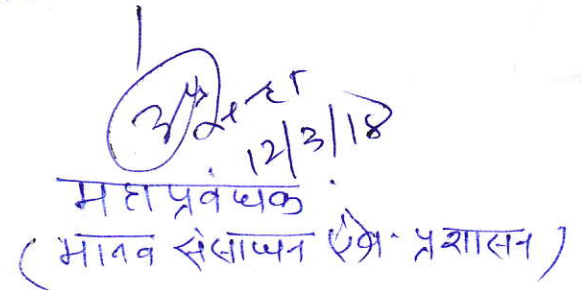 12/3/18
महाप्रबंधक
(मानव संसाधन एवं प्रशासन)